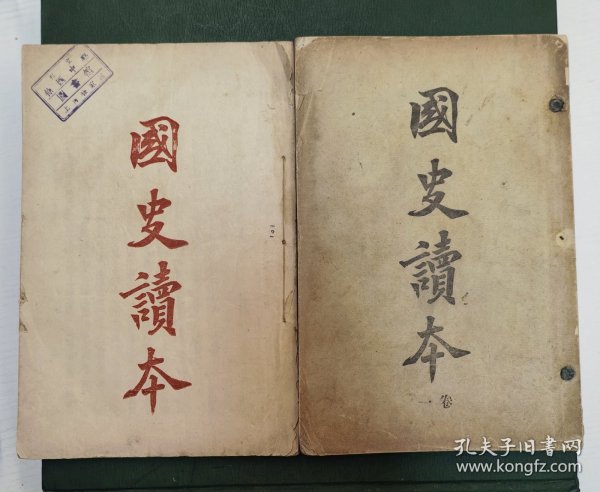 國史讀本
國史讀本
卷一
孔夫子旧書网
www.kongfz.com